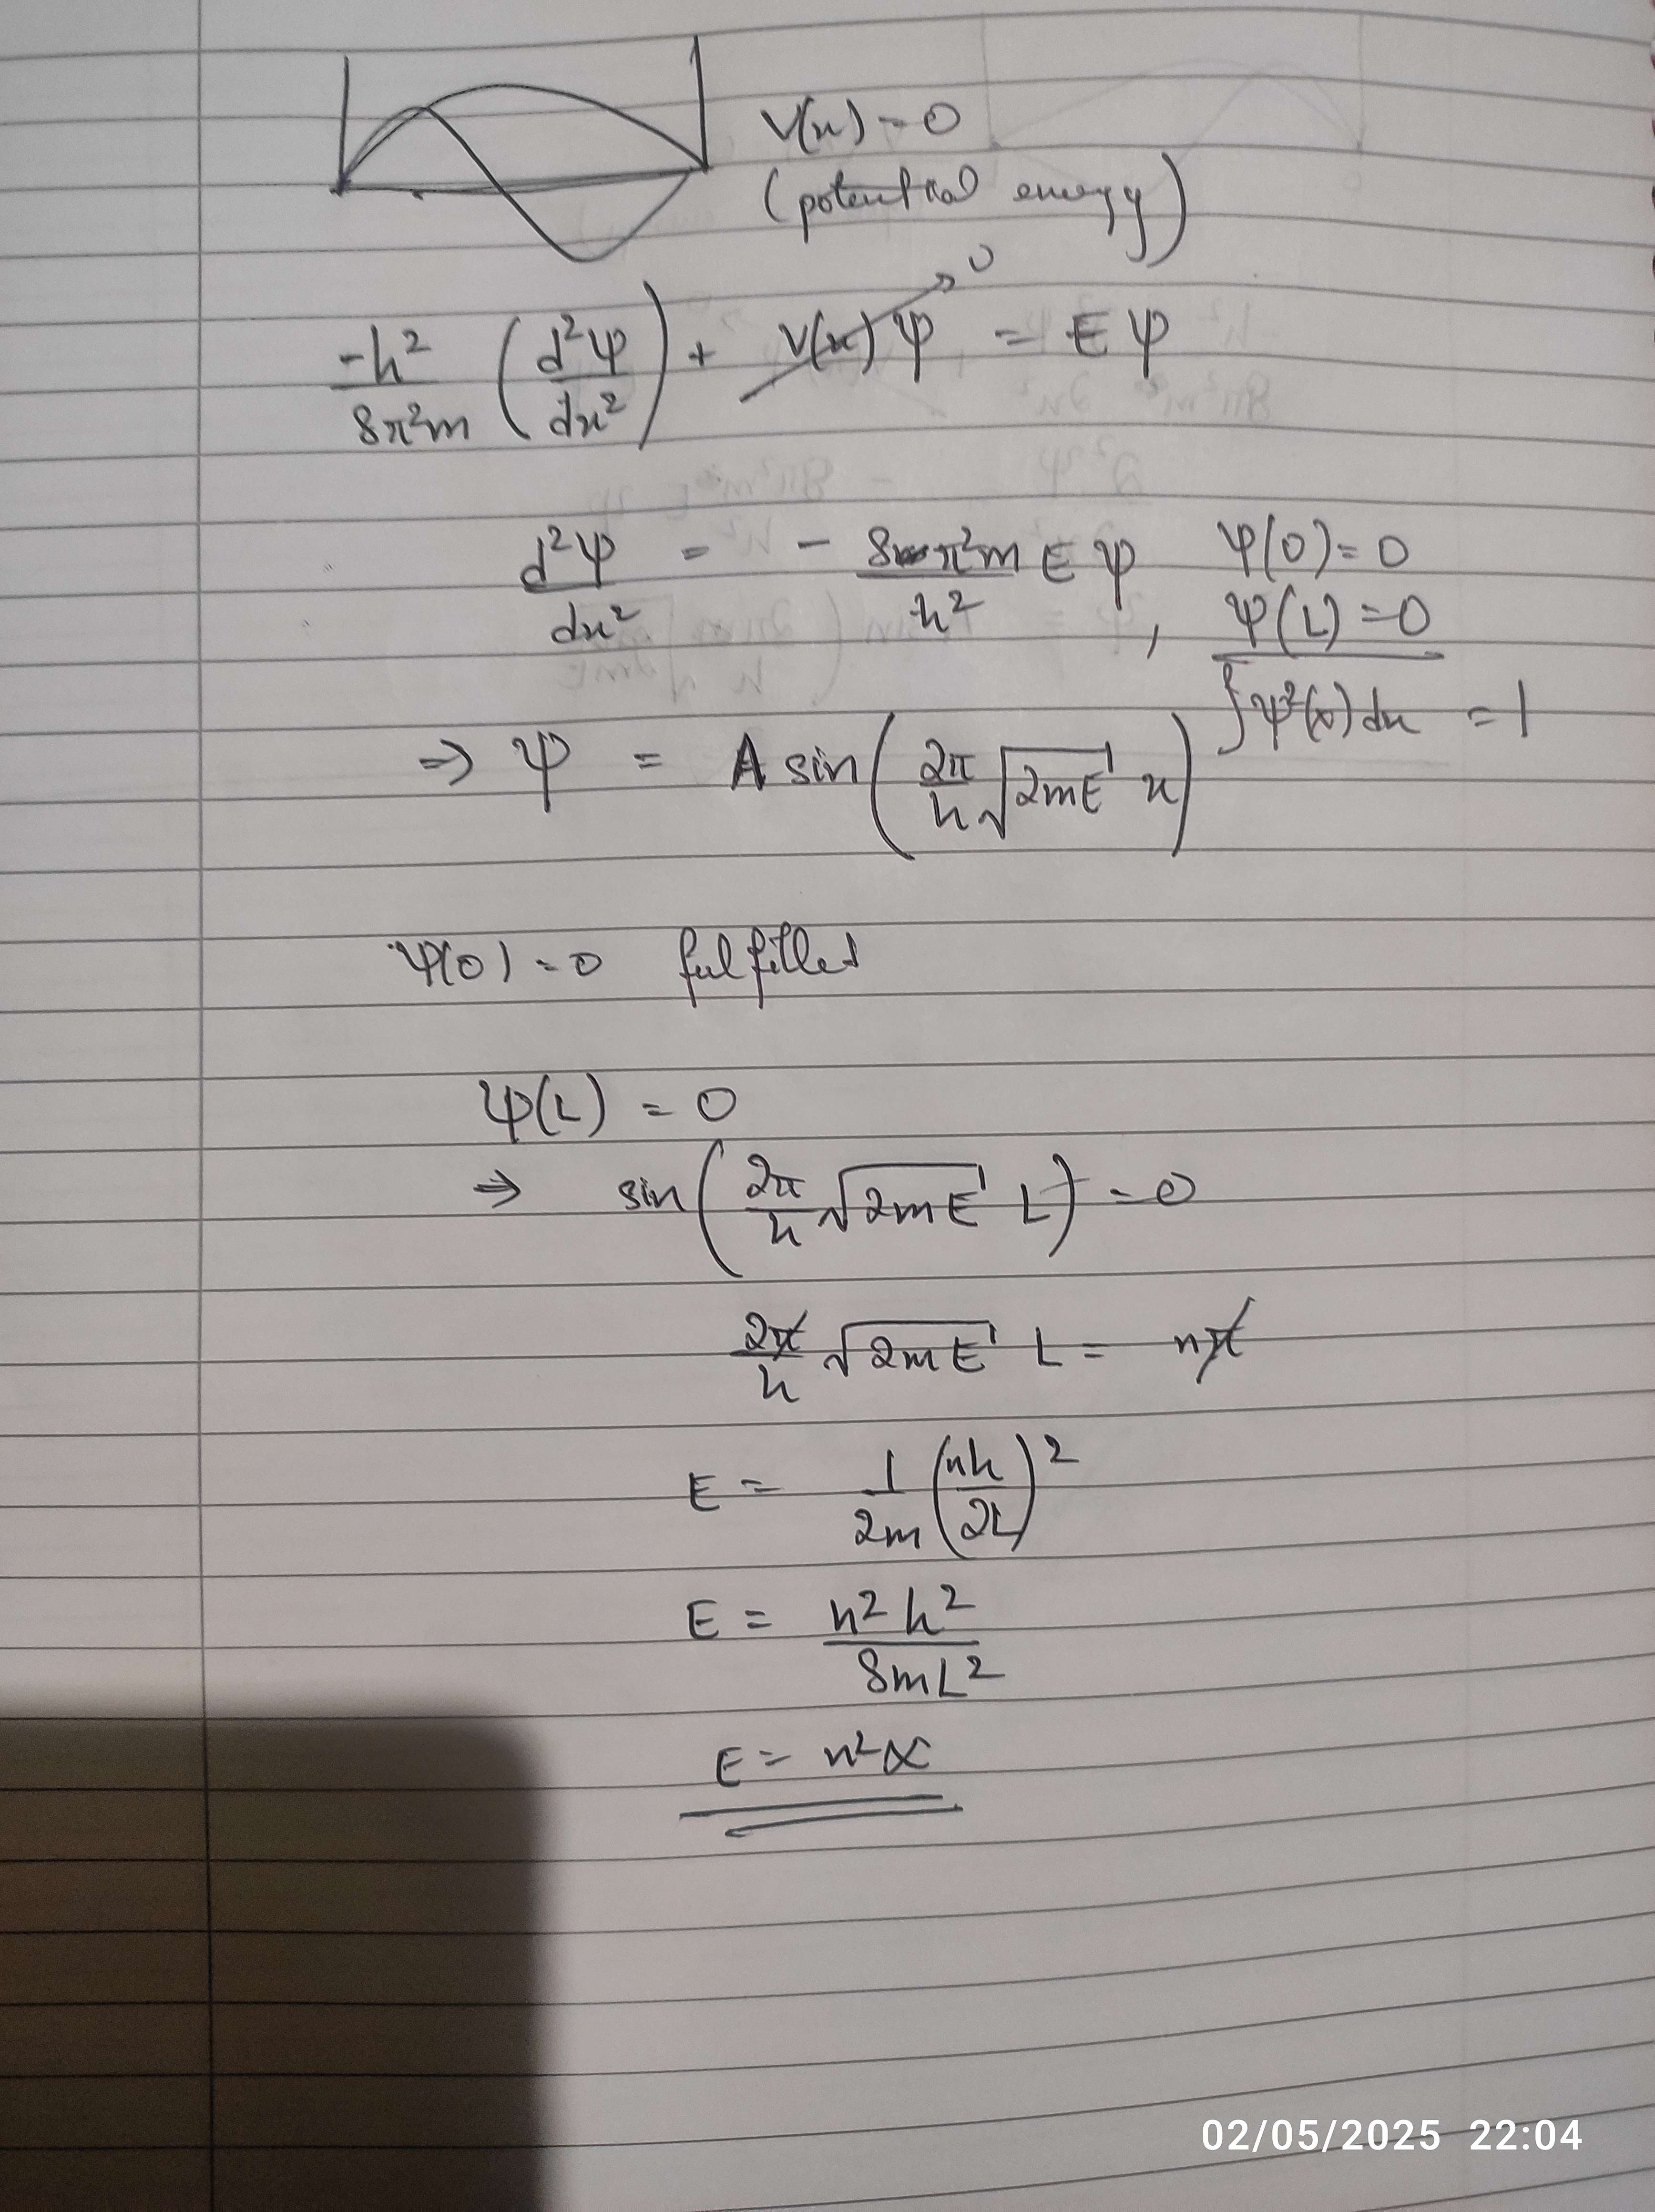 V(x) = 0
(potential energy)
-h²/8π²m (d²ψ/dx²) + V(x)ψ → 0 = Eψ
d²ψ/dx² = - 8π²m/h² Eψ , ψ(0) = 0
ψ(L) = 0
∫ψ²(x)dx = 1
⇒ ψ = A sin(2π/h √2mE x)
ψ(0) = 0 fulfilled
ψ(L) = 0
⇒ sin(2π/h √2mE L) = 0
2π/h √2mE L = nπ
E = 1/2m (nh/2L)²
E = n²h²/8mL²
E = n²α
02/05/2025 22:04